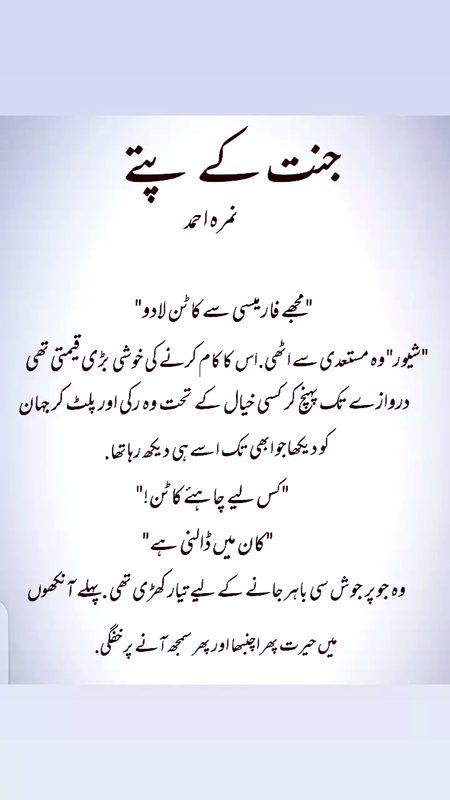 جنت کے پتے
نمرہ احمد
"مجھے فارمیسی سے کاٹن لادو"
"شیور" وہ مستعدی سے اٹھی. اس کا کام کرنے کی خوشی بڑی قیمتی تھی
دروازے تک پہنچ کر کسی خیال کے تحت وہ رکی اور پلٹ کر جہان
کو دیکھا جو ابھی تک اسے ہی دیکھ رہا تھا.
"کس لیے چاہئے کاٹن!"
"کان میں ڈالنی ہے"
وہ جو پر جوش سی باہر جانے کے لیے تیار کھڑی تھی. پہلے آنکھوں
میں حیرت پھر اچنبھا اور پھر سمجھ آنے پر خفگی.